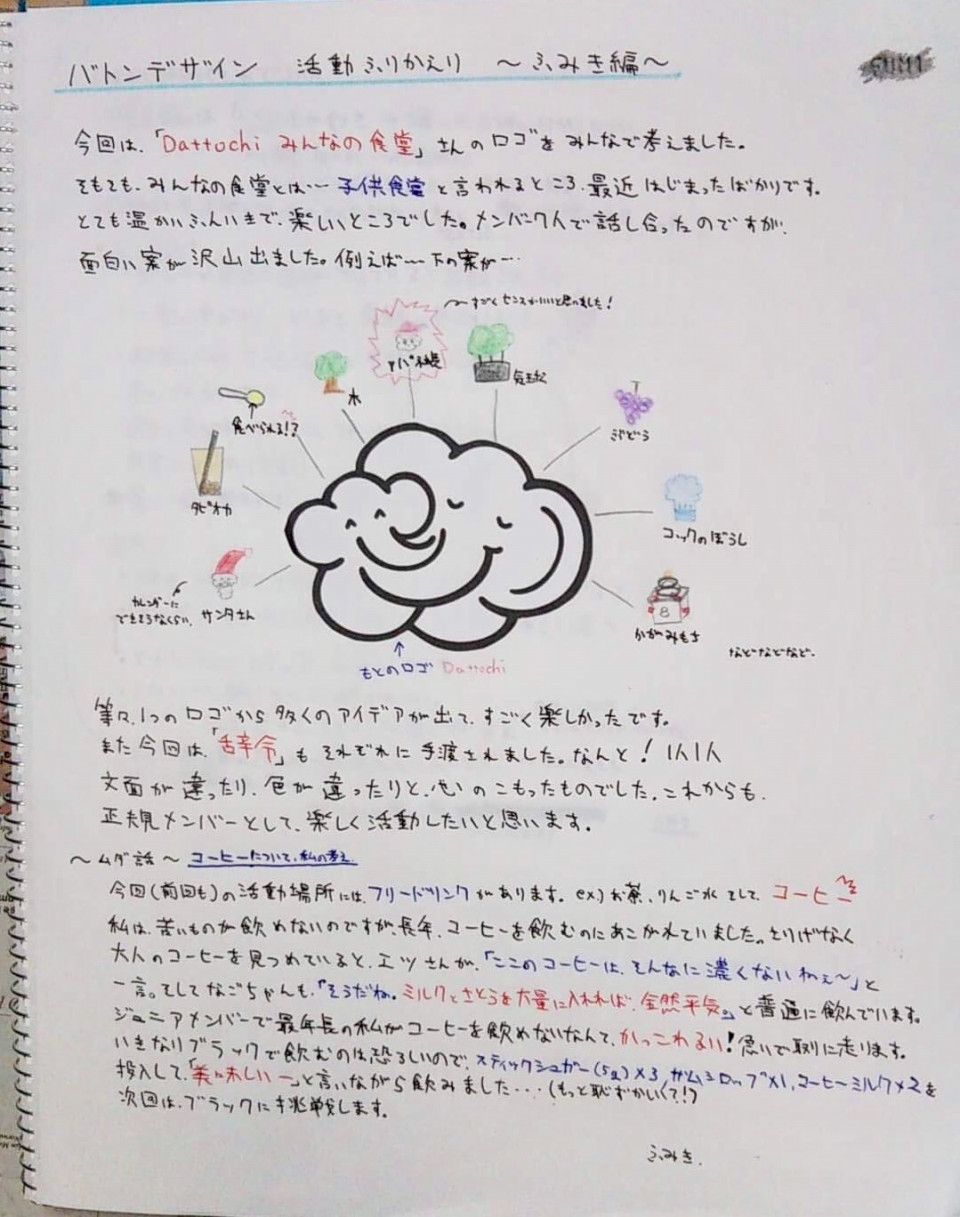 バトンデザイン 活動ふりかえり 〜ふみき編〜
今回は、「Dattochi みんなの食堂」さんのロゴをみんなで考えました。
そもそも、みんなの食堂とは…子供食堂と言われるところ、最近はじまったばかりです。
とても温かいふんいきで、楽しいところでした。メンバー7人で話し合ったのですが、
面白い案が沢山出ました。例えば〜下の案が…
〜すごくセンスがいいと思いました!
アパ不縵
気球
木
食べられる!?
ぶどう
タピオカ
コックのぼうし
サンタさん
カレンダーに
できそうなくらい、
8
かがみもち
などなどなど。
もとのロゴ Dattochi
等々、1つのロゴから多くのアイデアが出て、すごく楽しかったです。
また今回は、「辞令」もそれぞれに手渡されました。なんと!1人1人
文面が違ったり、色が違ったりと、心のこもったものでした。これからも、
正規メンバーとして、楽しく活動したいと思います。
〜ムダ話〜 コーヒーについて、私の考え
今回(前回も)の活動場所には、フリードリンクがあります。ex.)お茶、りんご水 そして、コーヒー
私は、苦いものが飲めないのですが、長年、コーヒーを飲むのにあこがれていました。さりげなく
大人のコーヒーを見つめていると、エツさんが、「ここのコーヒーは、そんなに濃くないわぇ〜」と
一言。そしてなごちゃんも、「そうだね。ミルクとさとうを大量に入れれば、全然平気。」と普通に飲んでいます。
ジュニアメンバーで最年長の私がコーヒーを飲めないなんて、かっこわるい!急いで取りに走ります。
いきなりブラックで飲むのは恐ろしいので、スティックシュガー(5g)×3、ガムシロップ×1、コーヒーミルク×2を
投入して、「美味しいー」と言いながら飲みました…(もっと恥ずかしくて!?)
次回は、ブラックに挑戦します。
ふみき.